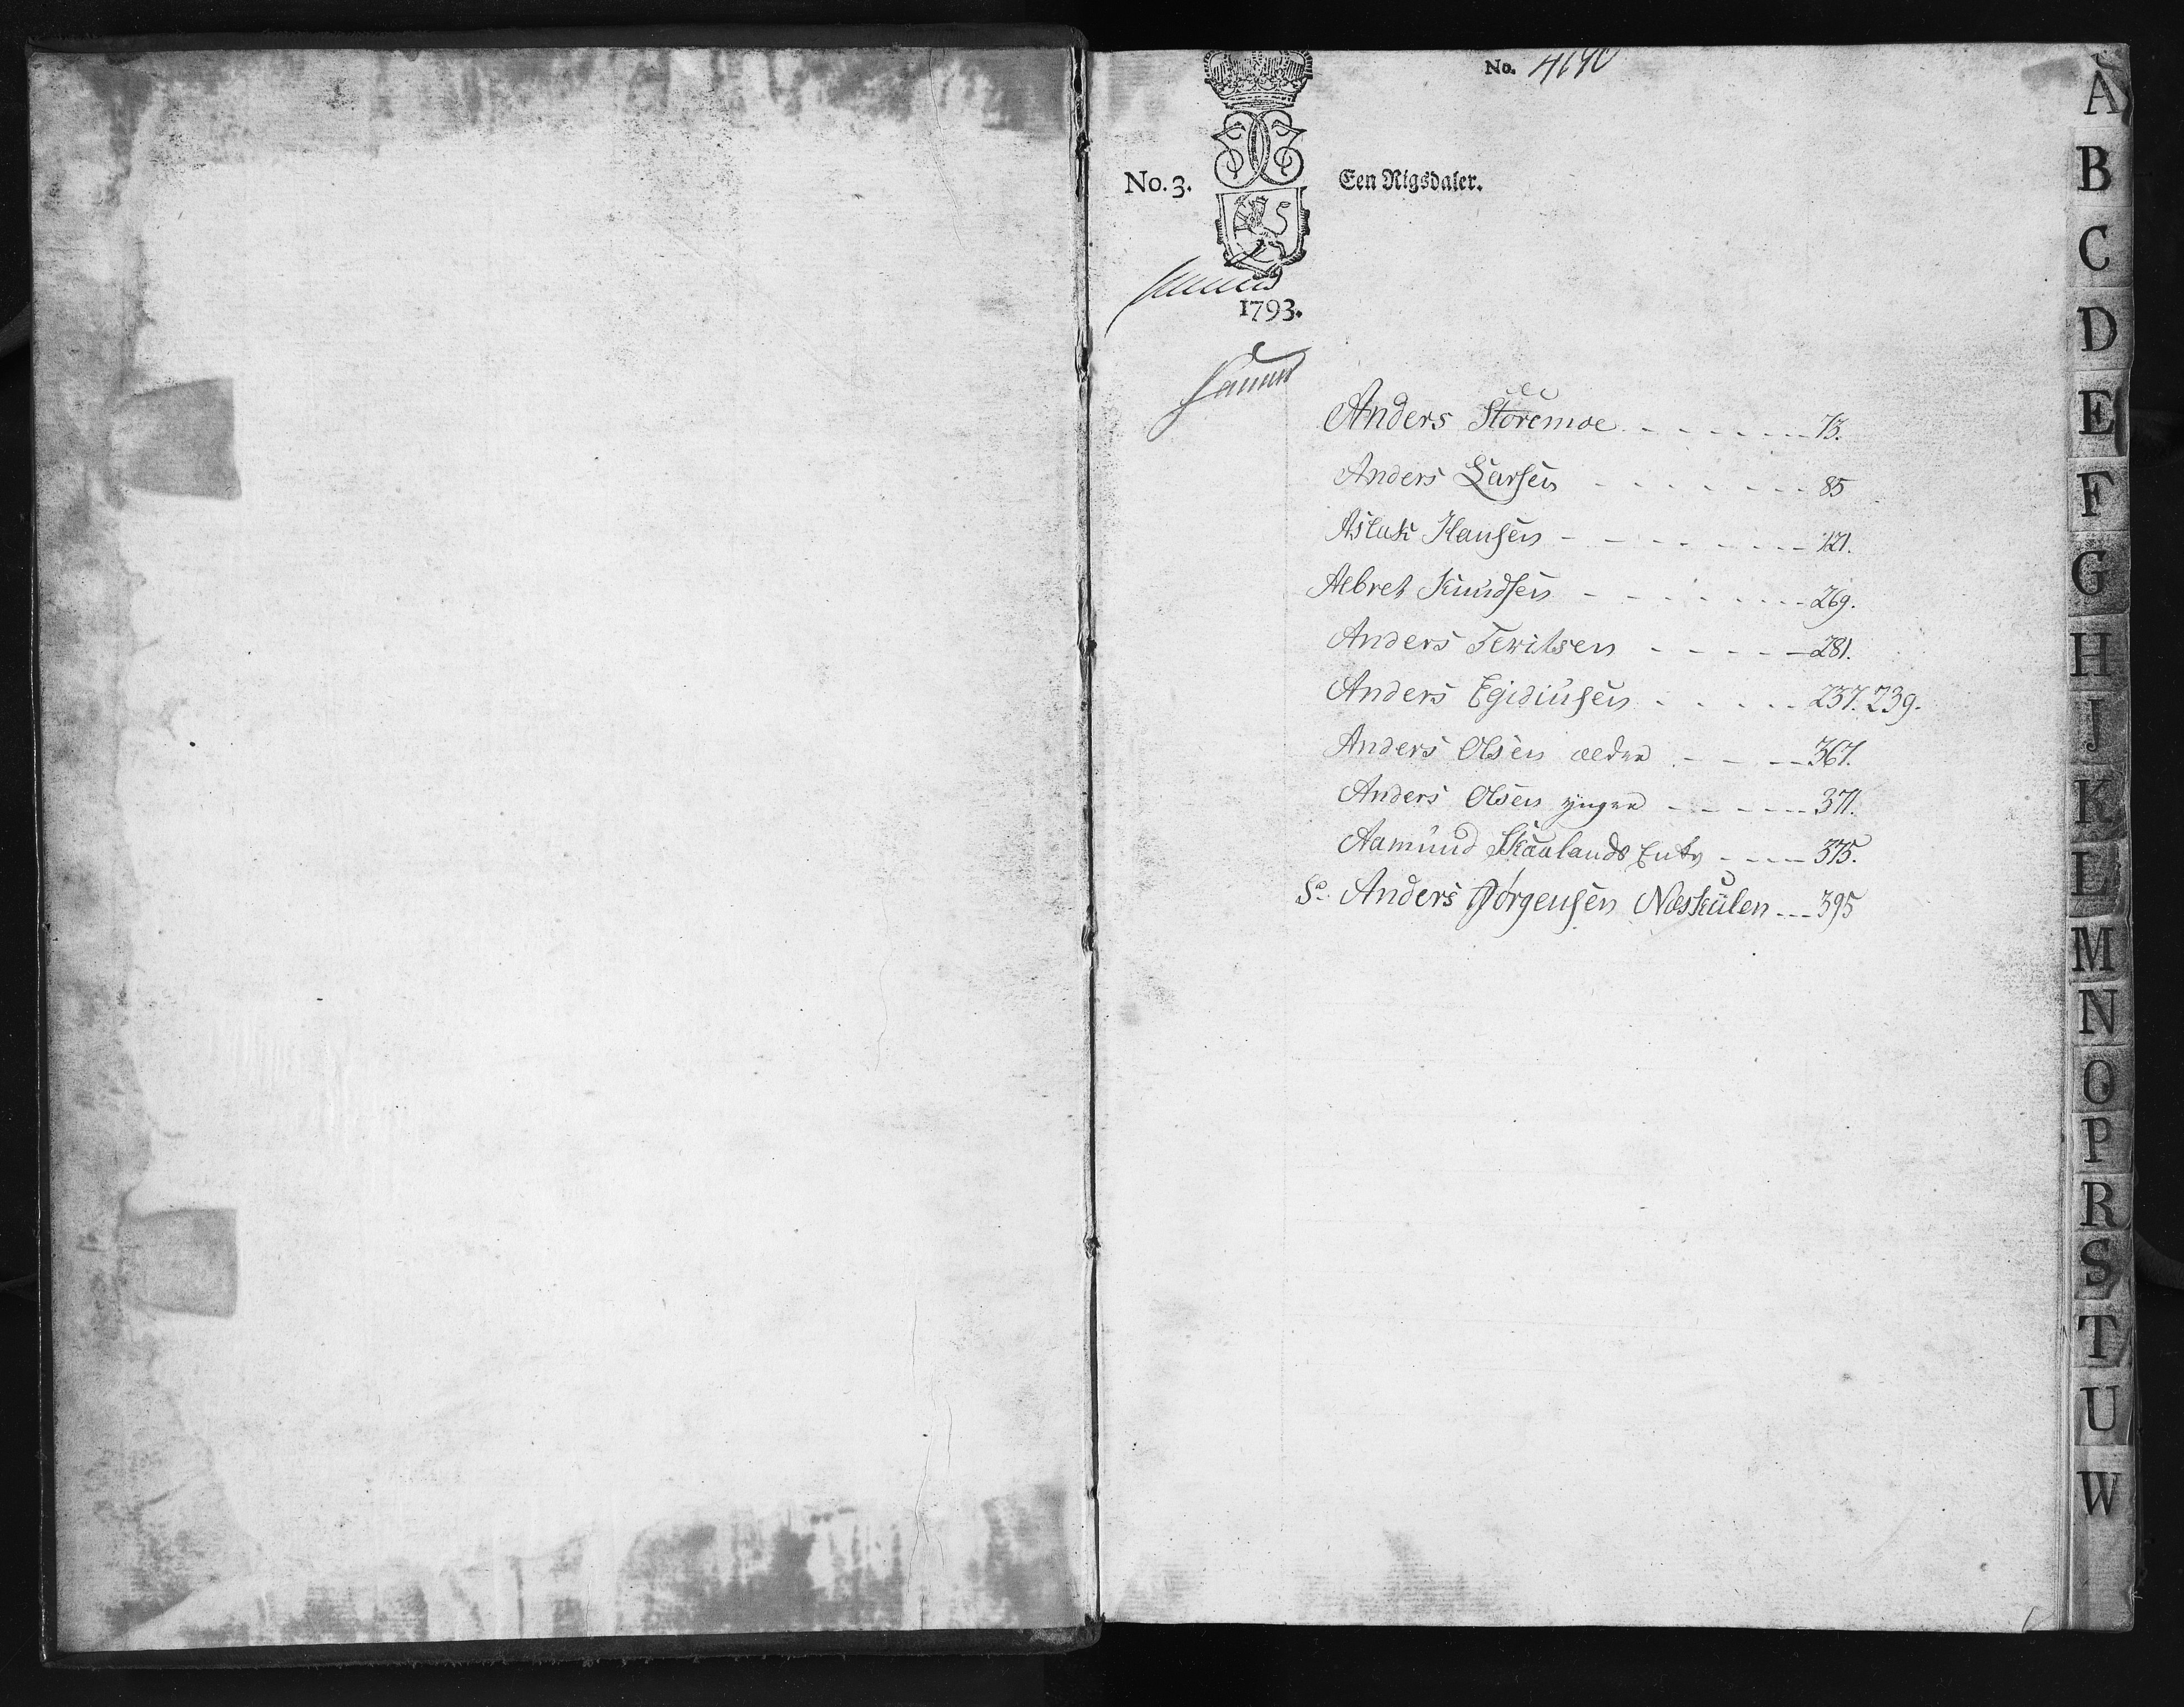 No. 4190
No. 3.
Een Rigsdaler.
1793.
Anders Storemoe - - - - - - 73.
Anders Larsen - - - - - - 85
Aslak Hansen - - - - - - 121.
Albret Knudsen - - - - - - 269.
Anders Terilsen - - - - - 281.
Anders Egidiusen - - - - 237. 239.
Anders Olsen ældre - - - 367.
Anders Olsen yngre - - - - - 371.
Aamund Skaalands Enke - - - - 375.
Sr. Anders Jørgensen Næskilen - - - 395
A
B
C
D
E
F
G
H
J
K
L
M
N
O
P
R
S
T
U
W